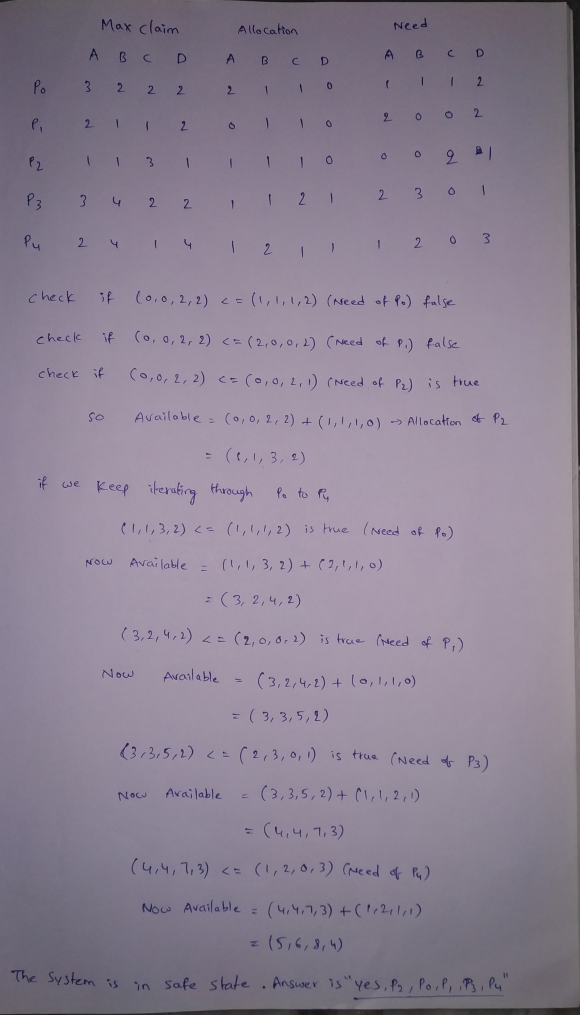 Max claim Allocation Need
A B C D A B C D A B C D
P0 3 2 2 2 2 1 1 0 1 1 1 2
P1 2 1 1 2 0 1 1 0 2 0 0 2
P2 1 1 3 1 1 1 1 0 0 0 2 1
P3 3 4 2 2 1 1 2 1 2 3 0 1
P4 2 4 1 4 1 2 1 1 1 2 0 3
check if (0,0,2,2) <= (1,1,1,2) (Need of P0) false
check if (0,0,2,2) <= (2,0,0,2) (Need of P1) false
check if (0,0,2,2) <= (0,0,2,1) (Need of P2) is true
so Available = (0,0,2,2) + (1,1,1,0) → Allocation of P2
= (1,1,3,2)
if we keep iterating through P0 to P4
(1,1,3,2) <= (1,1,1,2) is true (Need of P0)
Now Available = (1,1,3,2) + (2,1,1,0)
= (3,2,4,2)
(3,2,4,2) <= (2,0,0,2) is true (Need of P1)
Now Available = (3,2,4,2) + (0,1,1,0)
= (3,3,5,2)
(3,3,5,2) <= (2,3,0,1) is true (Need of P3)
Now Available = (3,3,5,2) + (1,1,2,1)
= (4,4,7,3)
(4,4,7,3) <= (1,2,0,3) (Need of P4)
Now Available = (4,4,7,3) + (1,2,1,1)
= (5,6,8,4)
The System is in safe state. Answer is "yes, P2, P0, P1, P3, P4"